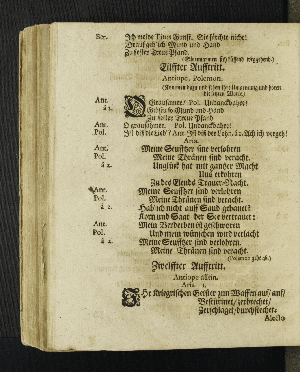 Ser. Ich meine Titus Gunst. Sie fürchte nicht!
Drauf geb ich Mund und Hand
Zu fester Treu Pfand.
Eilffter Aufftritt.
Antiope. Polemon.
Ant. Grausamer! Pol. Undanckbahre!
á 2. Gibstu so Mund und Hand
Zu fester Treue Pfand
Ant. Grausahmer. Pol. Undanckbahre!
Pol. Ist diß die Lieb? Ant. Ist diß der Lohn. á 2. Ach ich vergeh!
Aria.
Ant. Meine Seuffzer sine verlohren
Pol. Meine Thränen sind veracht.
á 2. Unglück hat mit gantzer Macht
Uns erkohren
Zu des Elends Trauer-Nacht.
Ant. Meine Seuffzer sind verlohren
Pol. Meine Thränen sind veracht.
á 2. Hab ich nicht auff Sand gebauet!
Korn und Saat der See vertrauet:
Ant. Mein Verderben ist geschworen
Pol. Und mein wünschen wird verlacht
á 2. Meine Seuffzer sind verlohren.
Meine Thränen sind veracht.
(Polemon geht ab.)
Zwölffter Aufftritt.
Antiope allein.
Aria. 1.
Ihr Kriegrischen Geister zun Waffen auf/ auf/
Bestürmet/ zerbrechet/
Zerschlaget/ durchstechet/